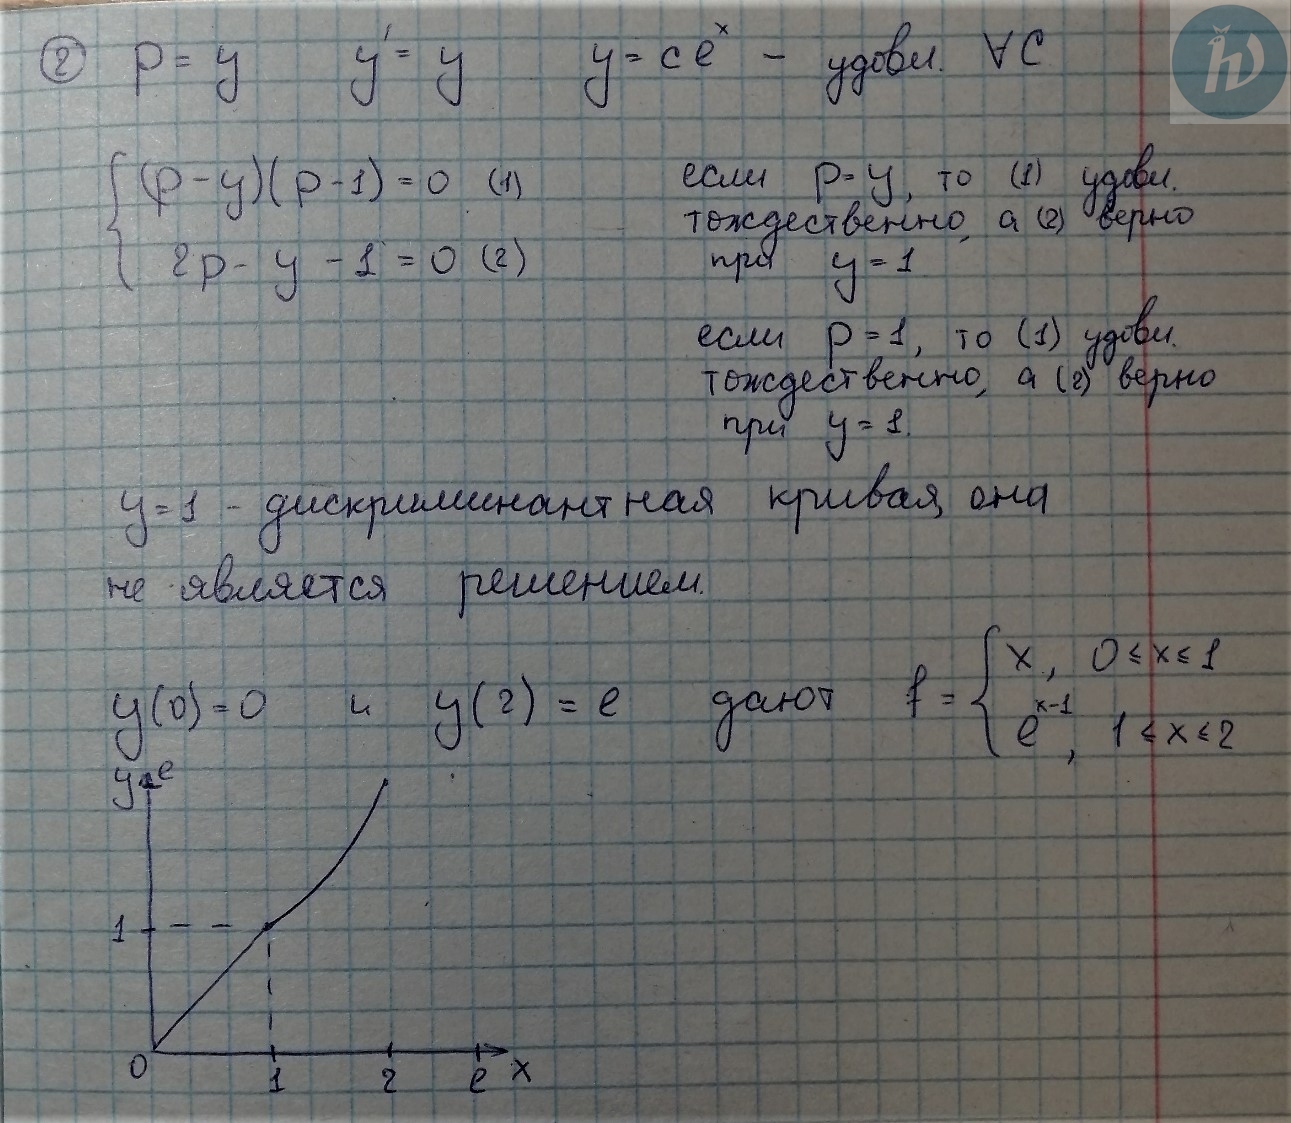 ② p = y y' = y y = ce^x – удовл. ∀C
{ (p - y)(p - 1) = 0 (1)
2p - y - 1 = 0 (2)
если p = y, то (1) удовл.
тождественно, а (2) верно
при y = 1
если p = 1, то (1) удовл.
тождественно, а (2) верно
при y = 1.
y = 1 - дискриминантная кривая, она
не является решением.
y(0) = 0 и y(2) = e дают f = { x, 0 ≤ x ≤ 1
e^{x-1}, 1 ≤ x ≤ 2
y e
1
0 1 2 e x